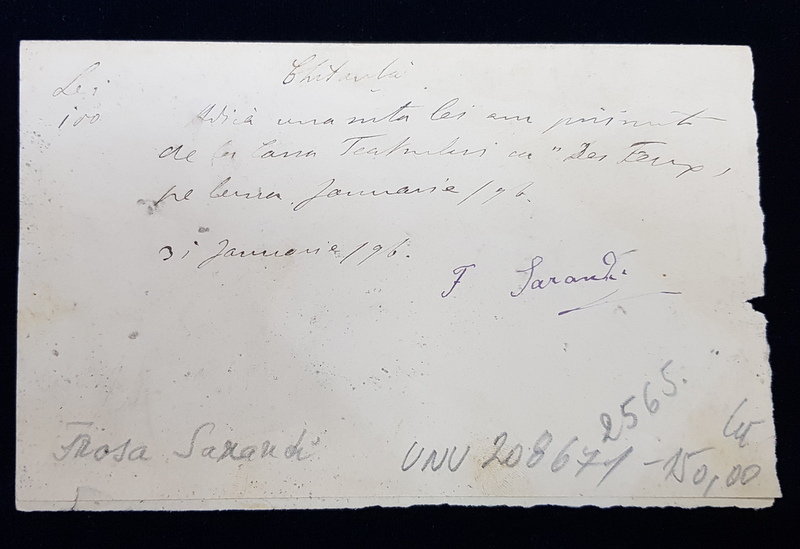 Chitanță
Lei
100
Adică una sută lei am primit
de la Casa Teatrului ca "Des Feux"
pe luna Januarie /96.
31 Januarie /96.
F Sarandi
2565.
Frosa Sarandi
UNV 208671 - 150,00